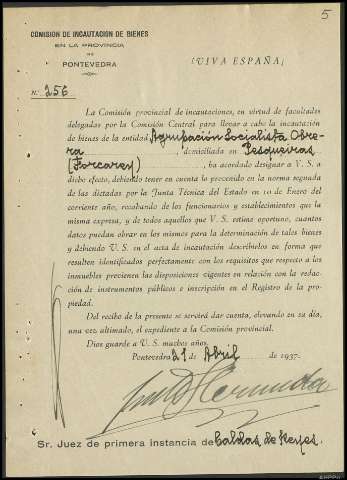 5
COMISIÓN DE INCAUTACIÓN DE BIENES
EN LA PROVINCIA
DE
PONTEVEDRA
¡VIVA ESPAÑA!
N.º 256
La Comisión provincial de incautaciones, en virtud de facultades
delegadas por la Comisión Central para llevar a cabo la incautación
de bienes de la entidad Agrupación Socialista Obre-
ra, domiciliada en Pesqueiras
(Forcarey), ha acordado designar a V. S. a
dicho efecto, debiendo tener en cuenta lo prevenido en la norma segunda
de las dictadas por la Junta Técnica del Estado en 10 de Enero del
corriente año, recabando de los funcionarios y establecimientos que la
misma expresa, y de todos aquellos que V. S. estime oportuno, cuantos
datos puedan obrar en los mismos para la determinación de tales bienes
y debiendo V. S. en el acta de incautación describirlos en forma que
resulten identificados perfectamente con los requisitos que respecto a los
inmuebles previenen las disposiciones vigentes en relación con la redac-
ción de instrumentos públicos e inscripción en el Registro de la pro-
piedad.
Del recibo de la presente se servirá dar cuenta, elevando en su día,
una vez ultimado, el expediente a la Comisión provincial.
Dios guarde a V. S. muchos años.
Pontevedra 21 de Abril de 1937.
Sr. Juez de primera instancia de Caldas de Reyes.